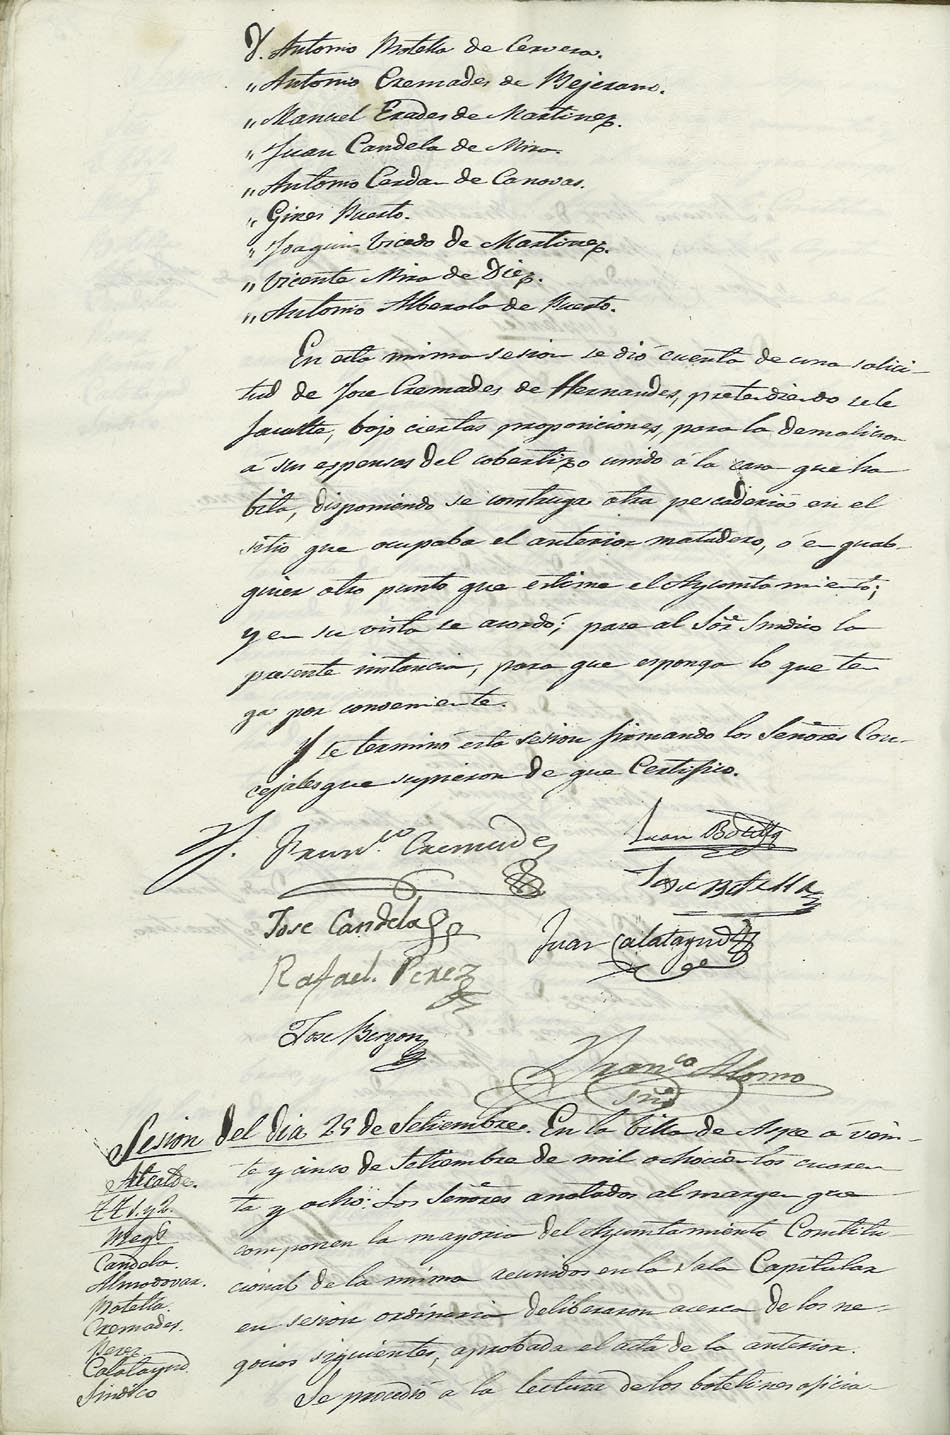 D. Antonio Botella de Cervera.
" Antonio Cremades de Bejerano.
" Manuel Erades de Martinez.
" Juan Candela de Mira.
" Antonio Cerdan de Canovas.
" Gines Puerto.
" Joaquin Vicedo de Martinez.
" Vicente Mira de Diez.
" Antonio Alberola de Puerto.
En esta misma sesion se dió cuenta de una solici-
tud de Jose Cremades de Hernandes, pretendiendo se le
faculte, bajo ciertas proposiciones, para la demolicion
á sus espensas del cobertizo unido á la casa que ha
bita, disponiendo se construya otra pescaderia en el
sitio que ocupaba el anterior matadero, ó en cual-
quier otro punto que estime el Ayuntamiento;
y en su vista se acordó; pase al Sor. Sindico la
presente instancia, para que esponga lo que ten
ga por conveniente.
Y se terminó esta sesion firmando los Señores Con-
cejales que supieron de que Certifico.
Franco. Cremades
Juan Botella
Jose Botella
Jose Candela
Juan Calatayud
Rafael Perez
Jose Burgon
Franco Alonso
Srio
Sesion del dia 25 de Setiembre. En la Villa de Aspe á vein-
te y cinco de Setiembre de mil ochocientos cuaren
ta y ocho: Los Señores anotados al margen que
componen la mayoria del Ayuntamiento Constitu-
cional de la misma reunidos en la Sala Capitular
en sesion ordinaria deliberaron acerca de los ne-
gocios siguientes, aprobada el acta de la anterior.
Se procedió á la lectura de los boletines oficia-
Alcalde.
Candela.
Almodovar.
Botella.
Cremades.
Perez.
Calatayud.
Sindico